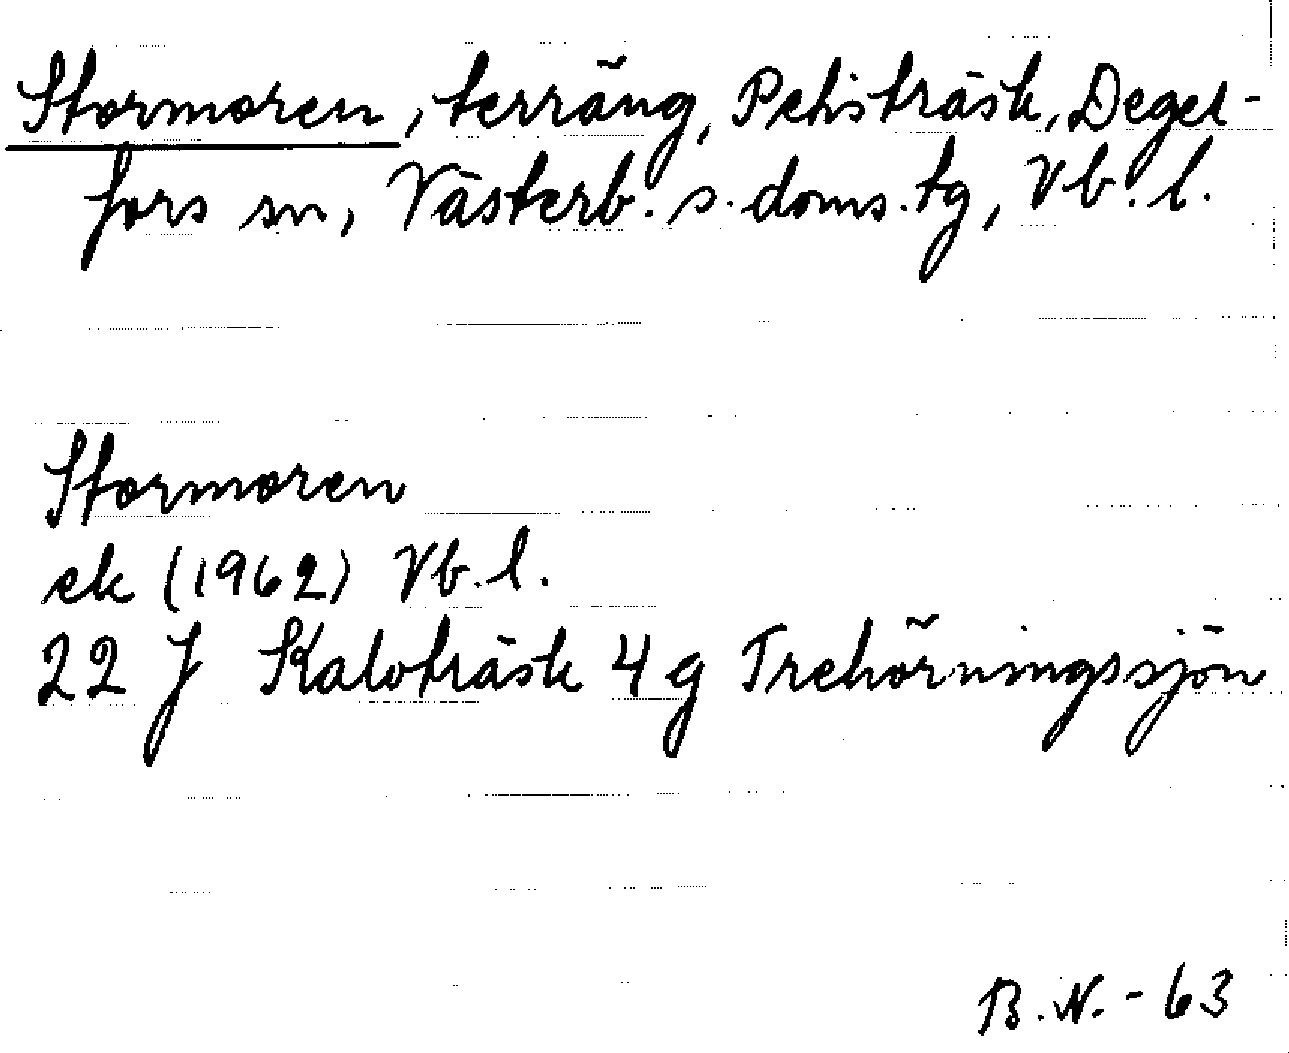 Stormoren, terräng, Pehsträsk, Deger-
fors sn, Västerb. s. doms. tg, Vb. l.
Stormoren
ek (1962) Vb. l.
22 J Kalvträsk 4 g Trehörningssjön
B. N. - 63